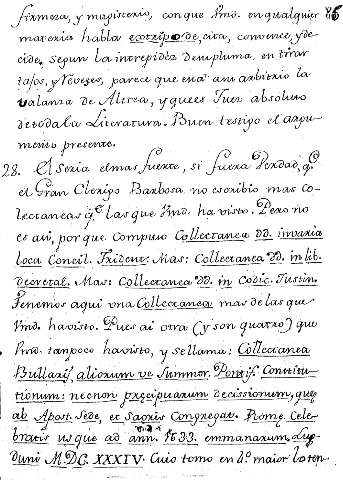 firmeza, y magisterio, con que Vmd. en qualquier 85
materia habla extripode, cita, convence, y de-
cide. segun la intrepidez de su pluma, en tirar
tajos, y Reveses, parece que está a su arbitrio la
valanza de Astrea, y que es Juez absoluto
de toda la Literatura. Buen testigo el argu-
mento presente.
28. El seria el mas fuerte, si fuera Verdad, qe.
el Gran Clerigo Barbosa no escribio mas Co-
llectaneas qe. las que Vmd. ha visto. Pero no
es assi, porque compuso Collectanea DD. in varia
loca Concil. Trident. Mas: Collectanea DD. in lib.
decretal. Mas: Collectanea DD. in Codic. Justin.
Tenemos aqui una Collectanea mas de las que
Vmd. ha visto. Pues ai otra (y son quatro) que
Vmd. tanpoco ha visto, y se llama: Collectanea
Bullarij, aliorum ve Summor. Pontif. Constitu-
tionum: necnon præcipuarum decissionum, quæ
ab Apost. Sede, et Sacris Congregat. Romæ Cele-
bratis usque ad ann. 1633. emmanarunt. Lug-
duni M.DC.XXXIV. Cuio tomo en 4.º maior la ten-